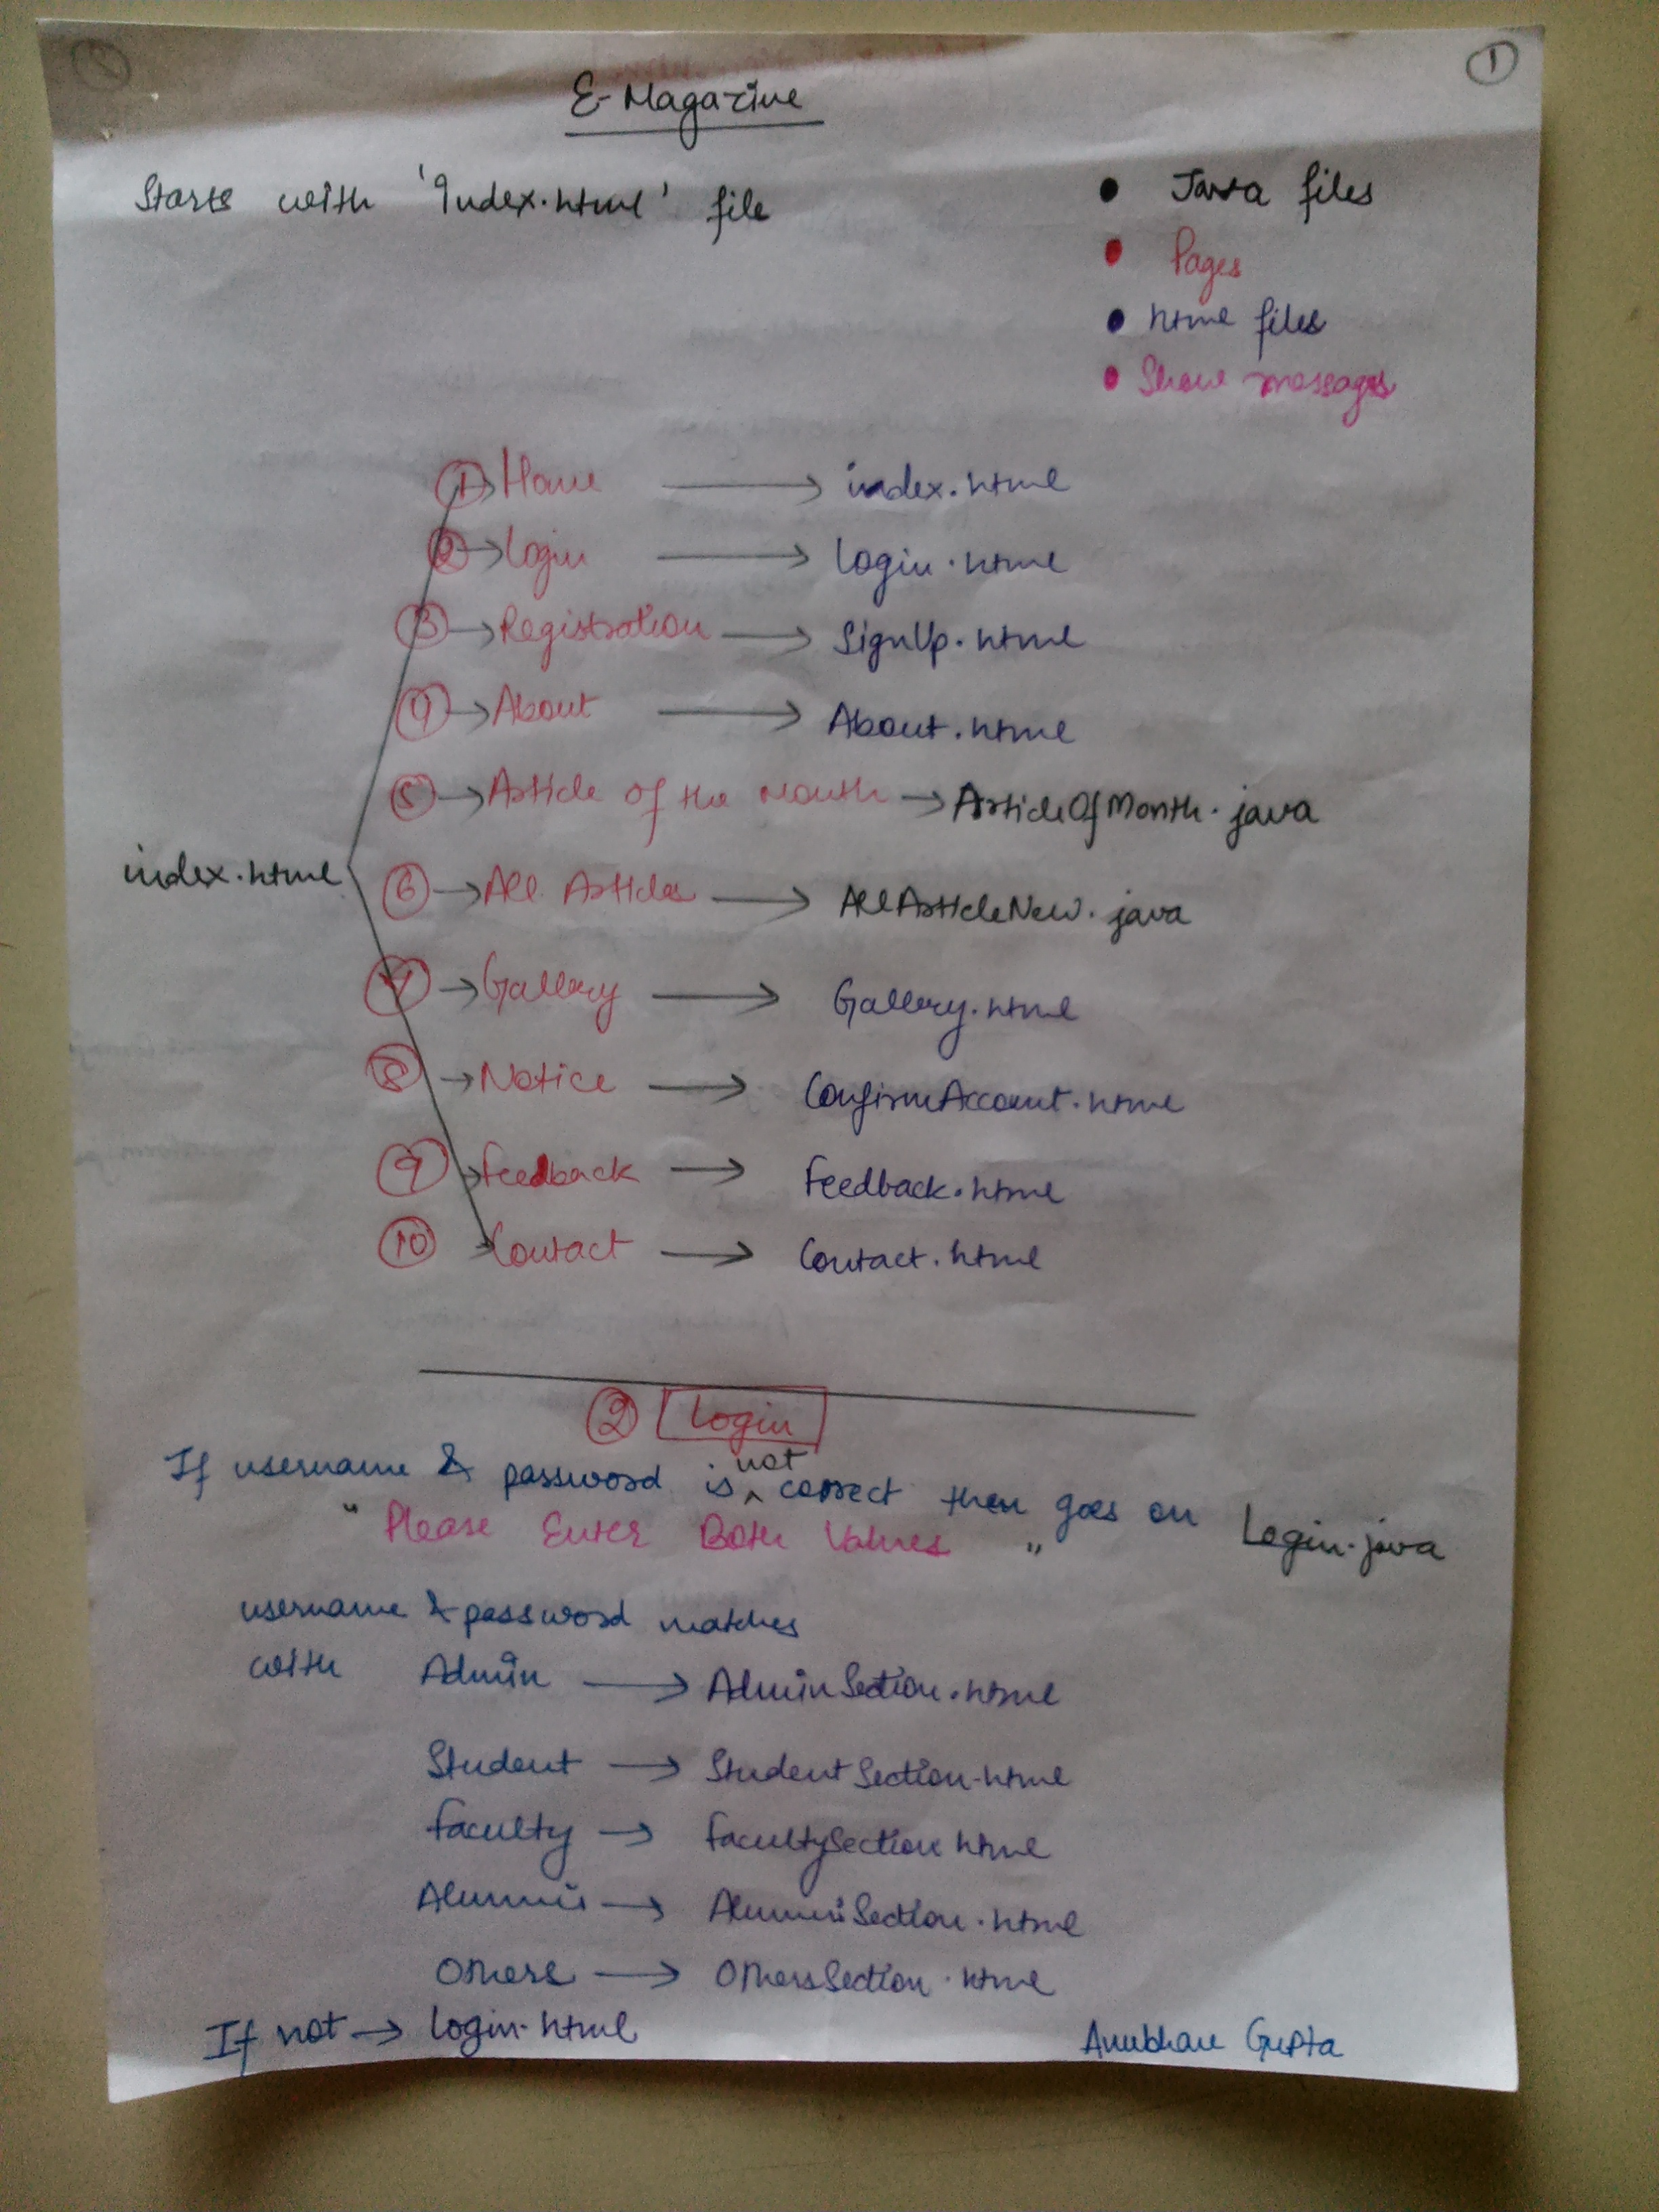 1
E-Magazine
Starts with 'Index.html' file
• Java files
• Pages
• html files
• Show messages
① → Home → index.html
② → Login → Login.html
③ → Registration → SignUp.html
④ → About → About.html
⑤ → Article of the Month → ArticleOfMonth.java
index.html
⑥ → All Articles → AllArticleNew.java
⑦ → Gallery → Gallery.html
⑧ → Notice → ConfirmAccount.html
⑨ → Feedback → Feedback.html
⑩ → Contact → Contact.html
② Login
If username & password is not correct then goes on Login.java
" Please Enter Both Values "
username & password matches
with Admin → AdminSection.html
Student → StudentSection.html
Faculty → FacultySection html
Alumni → AlumniSection.html
Others → OthersSection.html
If not → login.html
Anubhav Gupta